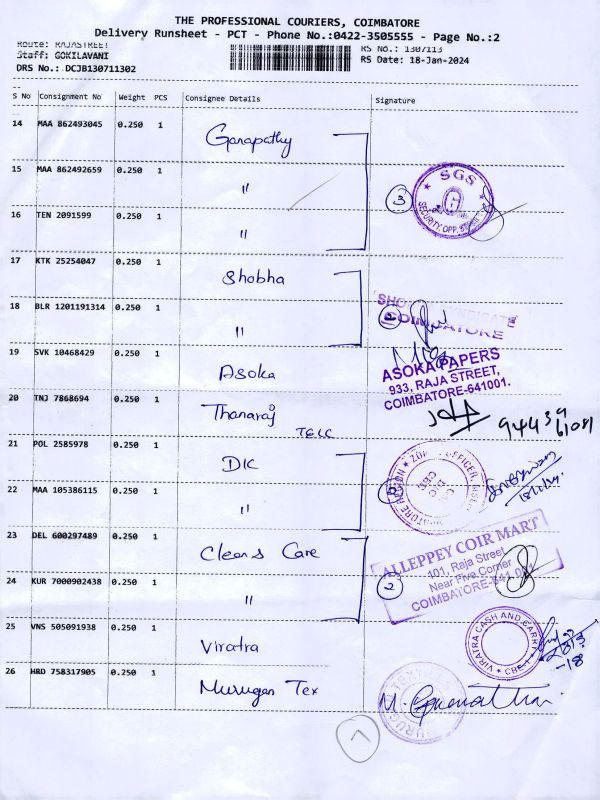 THE PROFESSIONAL COURIERS, COIMBATORE
Delivery Runsheet - PCT - Phone No.:0422-3505555 - Page No.:2
Route: RAJASTREET
RS No.: 1307113
Staff: GOKILAVANI
RS Date: 18-Jan-2024
DRS No.: DCJB130711302
S No Consignment No Weight PCS Consignee Details Signature
14 MAA 862493045 0.250 1 Ganapathy
15 MAA 862492659 0.250 1 "
3 SGS
SECURITY OFF
16 TEN 2091599 0.250 1 "
17 KTK 25254047 0.250 1 Shobha
18 BLR 1201191314 0.250 1 "
COIMBATORE
19 SVK 10468429 0.250 1 Asoka
ASOKA PAPERS
933, RAJA STREET,
COIMBATORE-641001.
20 TNJ 7868694 0.250 1 Thanaraj
TELC
94439
61081
21 POL 2585978 0.250 1 DIC
22 MAA 105386115 0.250 1 "
23 DEL 600297489 0.250 1 Cleans Care
ALLEPPEY COIR MART
101, Raja Street
Near Five Corner
COIMBATORE-641 001
24 KUR 7000902438 0.250 1 "
2
25 VNS 505091938 0.250 1 Viratra
VIRATRA CASH AND CARRY
CBE-1
-18
26 HRD 758317905 0.250 1 Murugan Tex